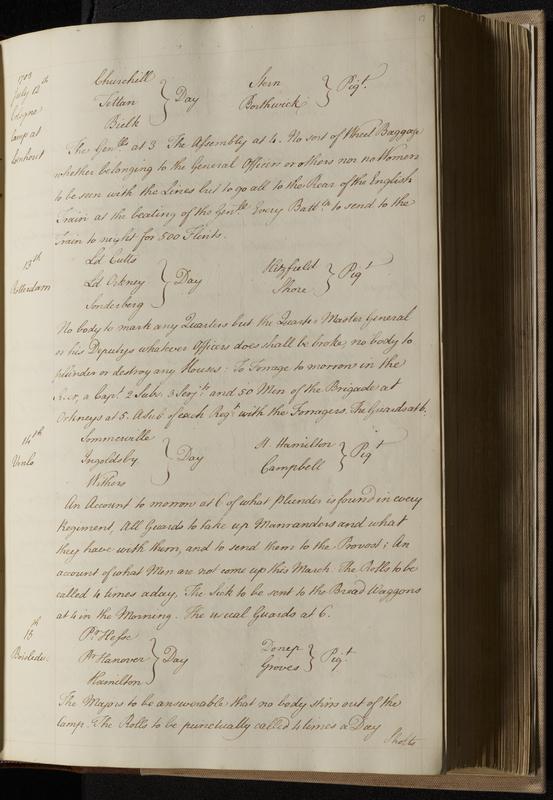 1703
July 12th Churchill Stern
Cologne Tettau } Day Borthwick } Piqt.
Camp at Bielk
The Genlle at 3 The Assembly at 4. No sort of Wheel Baggage
whether belonging to the General Officer or others nor no Women
to be seen with the Lines but to go all to the Rear of the English
Train at the beating of the Genlle Every Battln to send to the
Train to night for 500 Flints.
13th Ld Cutts
Rotterdam Ld Orkney } Day Shore } Piqt
Sonderberg
No body to mark any Quarters but the Quarter Master General
or his Deputys whatever Officers does shall be broke, no body to
plunder or destroy any Houses: To Forrage to morrow in the
a Capt. 2 Sub. 3 Serjts and 50 Men of the Brigade at
Orkneys at 5. A Sub. of each Regt with the Forragers. The Guards at 6.
14th Sommerville H. Hamilton
Venlo Ingoldsby } Day Campbell } Piqt
Withers
An Account to morrow at 6 of what Plunder is found in every
Regiment, All Guards to take up Marauanders and what
they have with them, and to send them to the Provost; An
account of what Men are not come up this March. The Rolls to be
called 4 times a day. The Sick to be sent to the Bread Waggons
at 4 in the Morning. The usual Guards at 6.
15th Pr Hesse Denep
Pr Hanover } Day Groves } Piqt.
Hamilton
The Majors to be answerable that no body stirs out of the
Camp. The Rolls to be punctually called 4 times a Day
Shotts